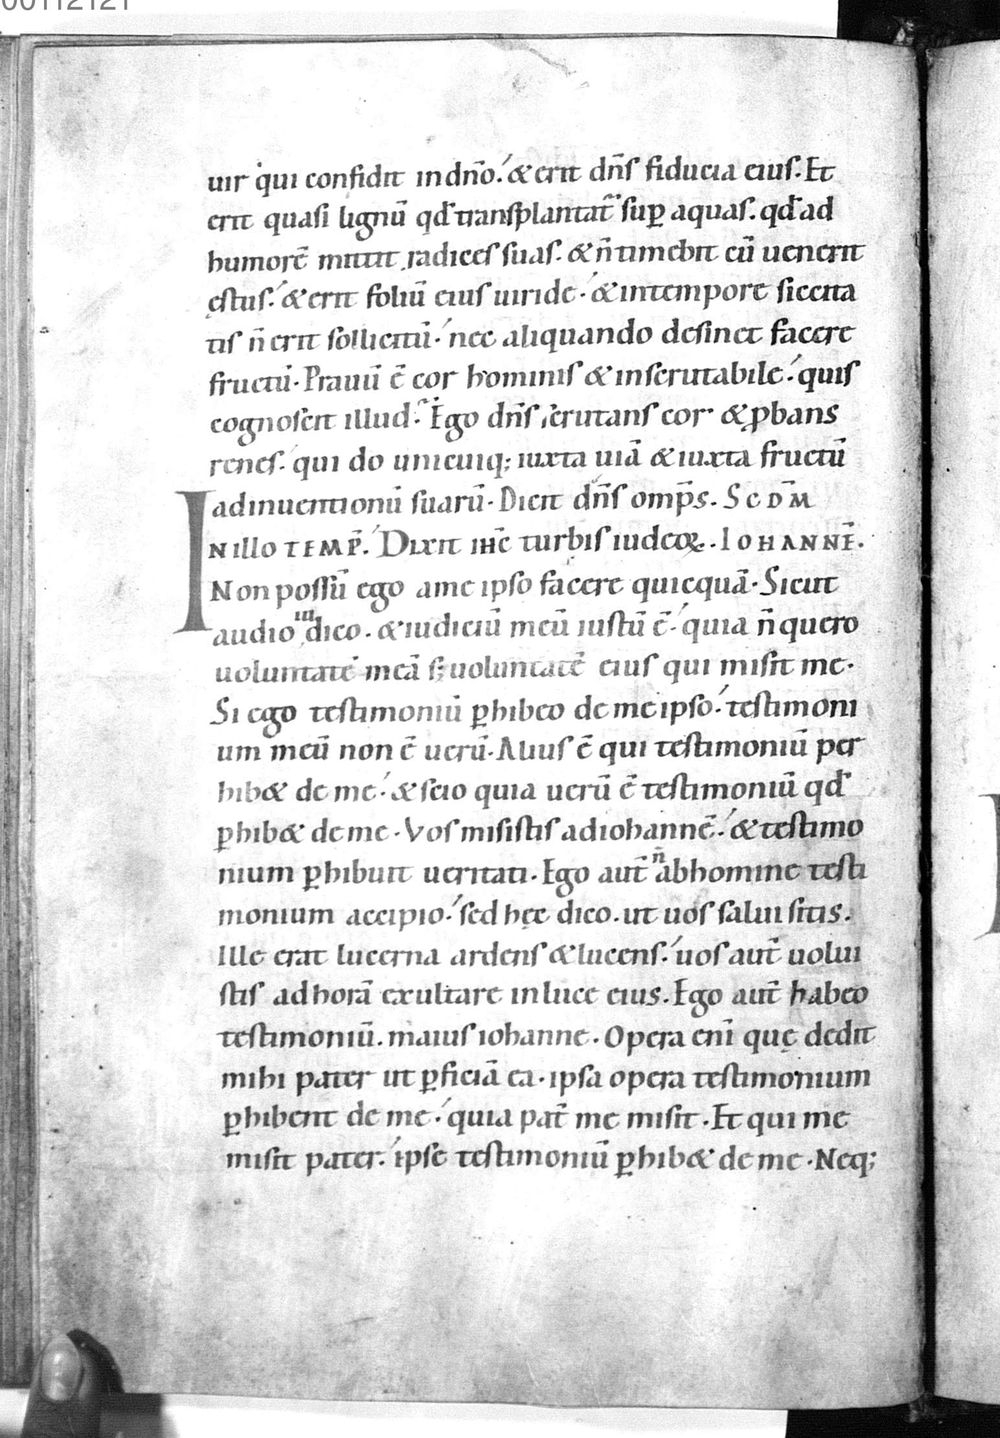 00112121
uir qui confidit indno. & erit dns fiducia eius. Et
erit quasi lignū qd transplantat̄ sup aquas. qd ad
humorē mittit radices suas. & n̄ timebit cū uenerit
ęstus. & erit foliū eius uiride. & intempore siccita
tis n̄ erit sollicitū. nec aliquando desinet facere
fructū. Prauū ē cor hominis & inscrutabile. quis
cognoscet illud. Ego dn̄s scrutans cor & ꝓbans
renes. qui do unicuiq; iuxta uiā & iuxta fructū
adinuentionū suarū. Dicit dn̄s omp̄s. SCDM̄
INillo TEMP̄. Dixit ihc̄ turbis iudeoꝝ. IOHANNĒ.
Non possū ego ame ipso facere quicquā. Sicut
audio iudico. & iudiciū meū iustū ē. quia n̄ quero
uoluntatē meā s; uoluntatē eius qui misit me.
Si ego testimoniū ꝑhibeo de me ipso. testimoni
um meū non ē uerū. Alius ē qui testimoniū per
hib& de me. & scio quia uerū ē testimoniū qd
ꝑhib& de me. Vos misistis adiohannē. & testimo
nium ꝑhibuit ueritati. Ego aut̄ n̄ abhomine testi
monium accipio. sed hęc dico. ut uos salui sitis.
Ille erat lucerna ardens & lucens. uos aut̄ uolui
stis adhorā exultare inluce eius. Ego aut̄ habeo
testimoniū. maius iohanne. Opera eni̅ quę dedit
mihi pater ut ꝑficiā ea. ipsa opera testimonium
ꝑhibent de me. quia pat̄ me misit. Et qui me
misit pater. ipse testimoniū ꝑhib& de me. Neq;